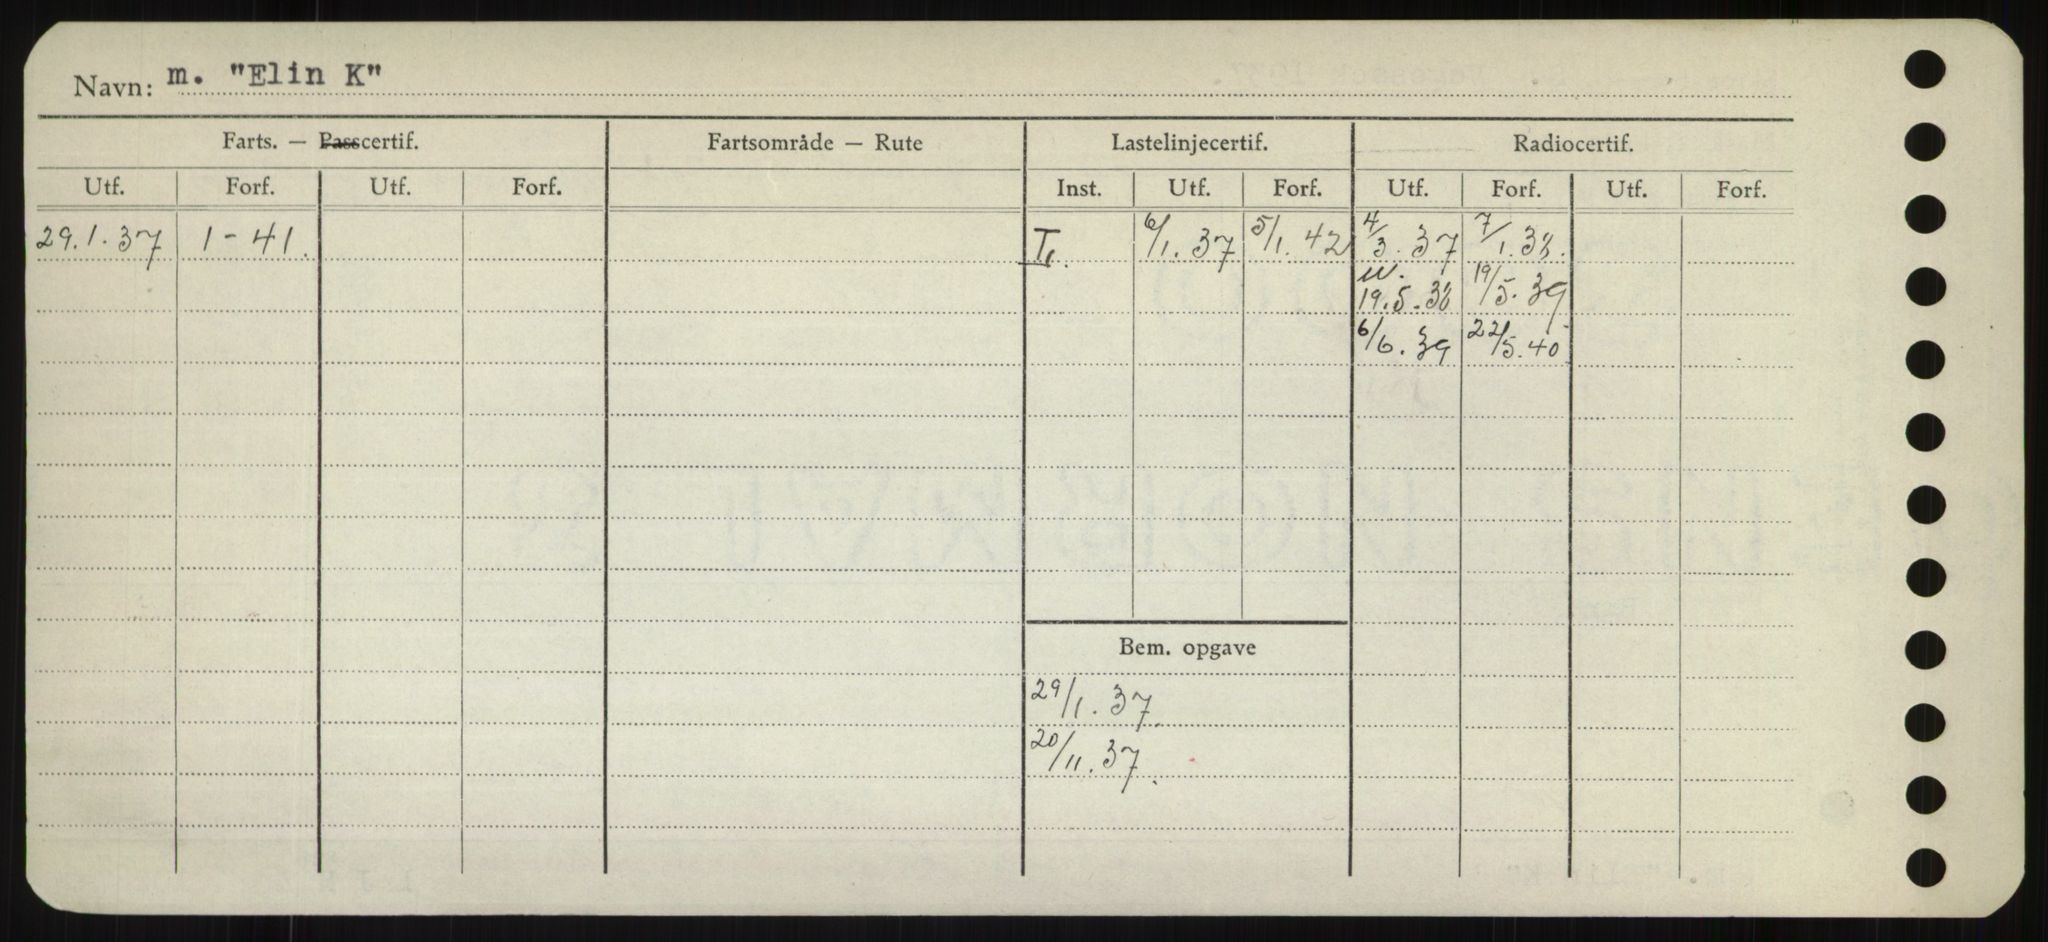 Navn: m. "Elin K"
Farts. — Passcertif. Fartsområde — Rute Lastelinjecertif. Radiocertif.
Utf. Forf. Utf. Forf. Inst. Utf. Forf. Utf. Forf. Utf. Forf.
29.1.37 1-41. 6/1.37 5/1.42 4/3.37 7/1.38.
19.5.38 19/5.39
6/6.39 22/5.40
Bem. opgave
29/1.37.
20/11.37.